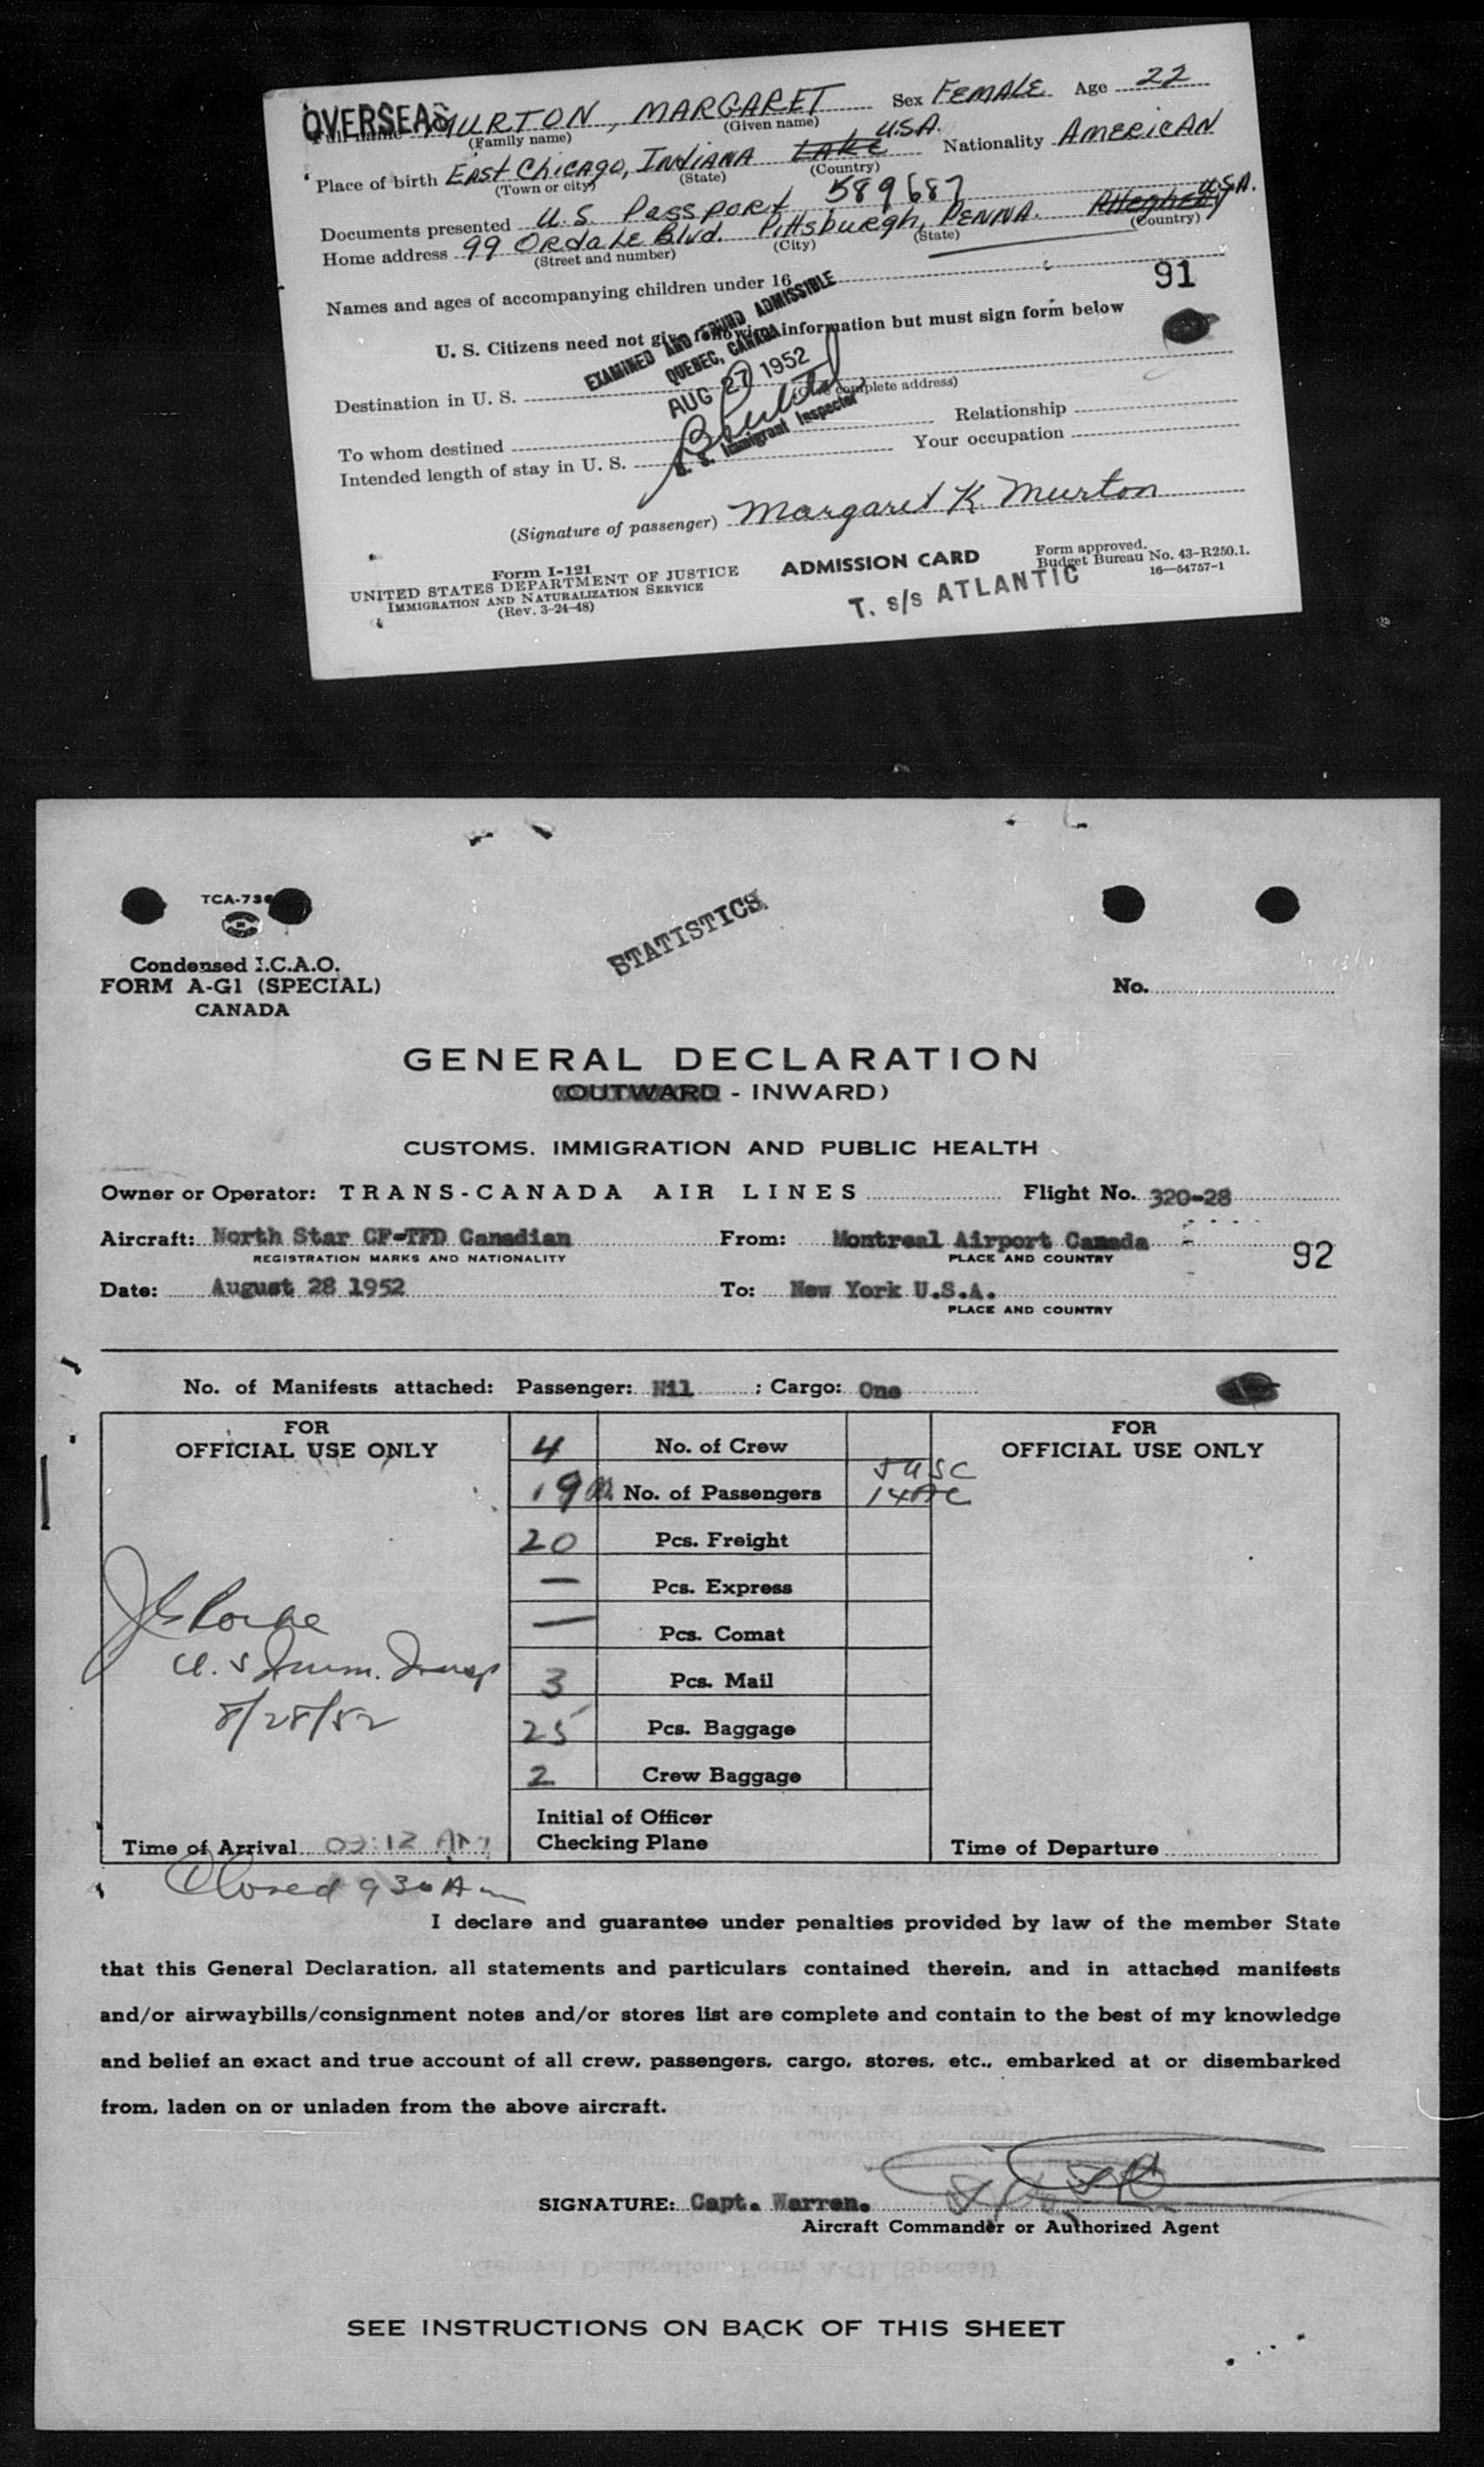 OVERSEAS
MURTON, MARGARET Sex FEMALE Age 22
(Family name) (Given name)
Place of birth East Chicago, INDIANA LAKE U.S.A. Nationality AMERICAN
(Town or city) (State) (Country)
Documents presented U.S. Passport 589687
Home address 99 Ordale Blvd. Pittsburgh, PENNA. Allegheny U.S.A.
(Street and number) (City) (State) (Country)
Names and ages of accompanying children under 16
91
U. S. Citizens need not give following information but must sign form below
EXAMINED AND FOUND ADMISSIBLE
QUEBEC, CANADA
AUG 27 1952
U. S. Immigrant Inspector
Destination in U. S.
(complete address)
To whom destined Relationship
Intended length of stay in U. S. Your occupation
(Signature of passenger) Margaret K. Murton
Form I-121
UNITED STATES DEPARTMENT OF JUSTICE
IMMIGRATION AND NATURALIZATION SERVICE
(Rev. 3-24-48)
ADMISSION CARD
Form approved.
Budget Bureau No. 43-R250.1.
16—54757-1
T. s/s ATLANTIC
TCA-73
STATISTICS
Condensed I.C.A.O.
FORM A-G1 (SPECIAL)
CANADA
No.
GENERAL DECLARATION
(OUTWARD - INWARD)
CUSTOMS, IMMIGRATION AND PUBLIC HEALTH
Owner or Operator: TRANS-CANADA AIR LINES Flight No. 320-28
Aircraft: North Star CF-TFD Canadian From: Montreal Airport Canada
REGISTRATION MARKS AND NATIONALITY PLACE AND COUNTRY
92
Date: August 28 1952 To: New York U.S.A.
PLACE AND COUNTRY
No. of Manifests attached: Passenger: Nil ; Cargo: One
FOR
OFFICIAL USE ONLY
4 No. of Crew
FOR
OFFICIAL USE ONLY
19 No. of Passengers 5 USC
14 AC
20 Pcs. Freight
— Pcs. Express
— Pcs. Comat
3 Pcs. Mail
25 Pcs. Baggage
2 Crew Baggage
U.S Imm. Insp
8/28/52
Initial of Officer
Checking Plane
Time of Arrival :12 AM
Time of Departure
Closed 9 30 Am
I declare and guarantee under penalties provided by law of the member State
that this General Declaration, all statements and particulars contained therein, and in attached manifests
and/or airwaybills/consignment notes and/or stores list are complete and contain to the best of my knowledge
and belief an exact and true account of all crew, passengers, cargo, stores, etc., embarked at or disembarked
from, laden on or unladen from the above aircraft.
SIGNATURE: Capt. Warren.
Aircraft Commander or Authorized Agent
SEE INSTRUCTIONS ON BACK OF THIS SHEET